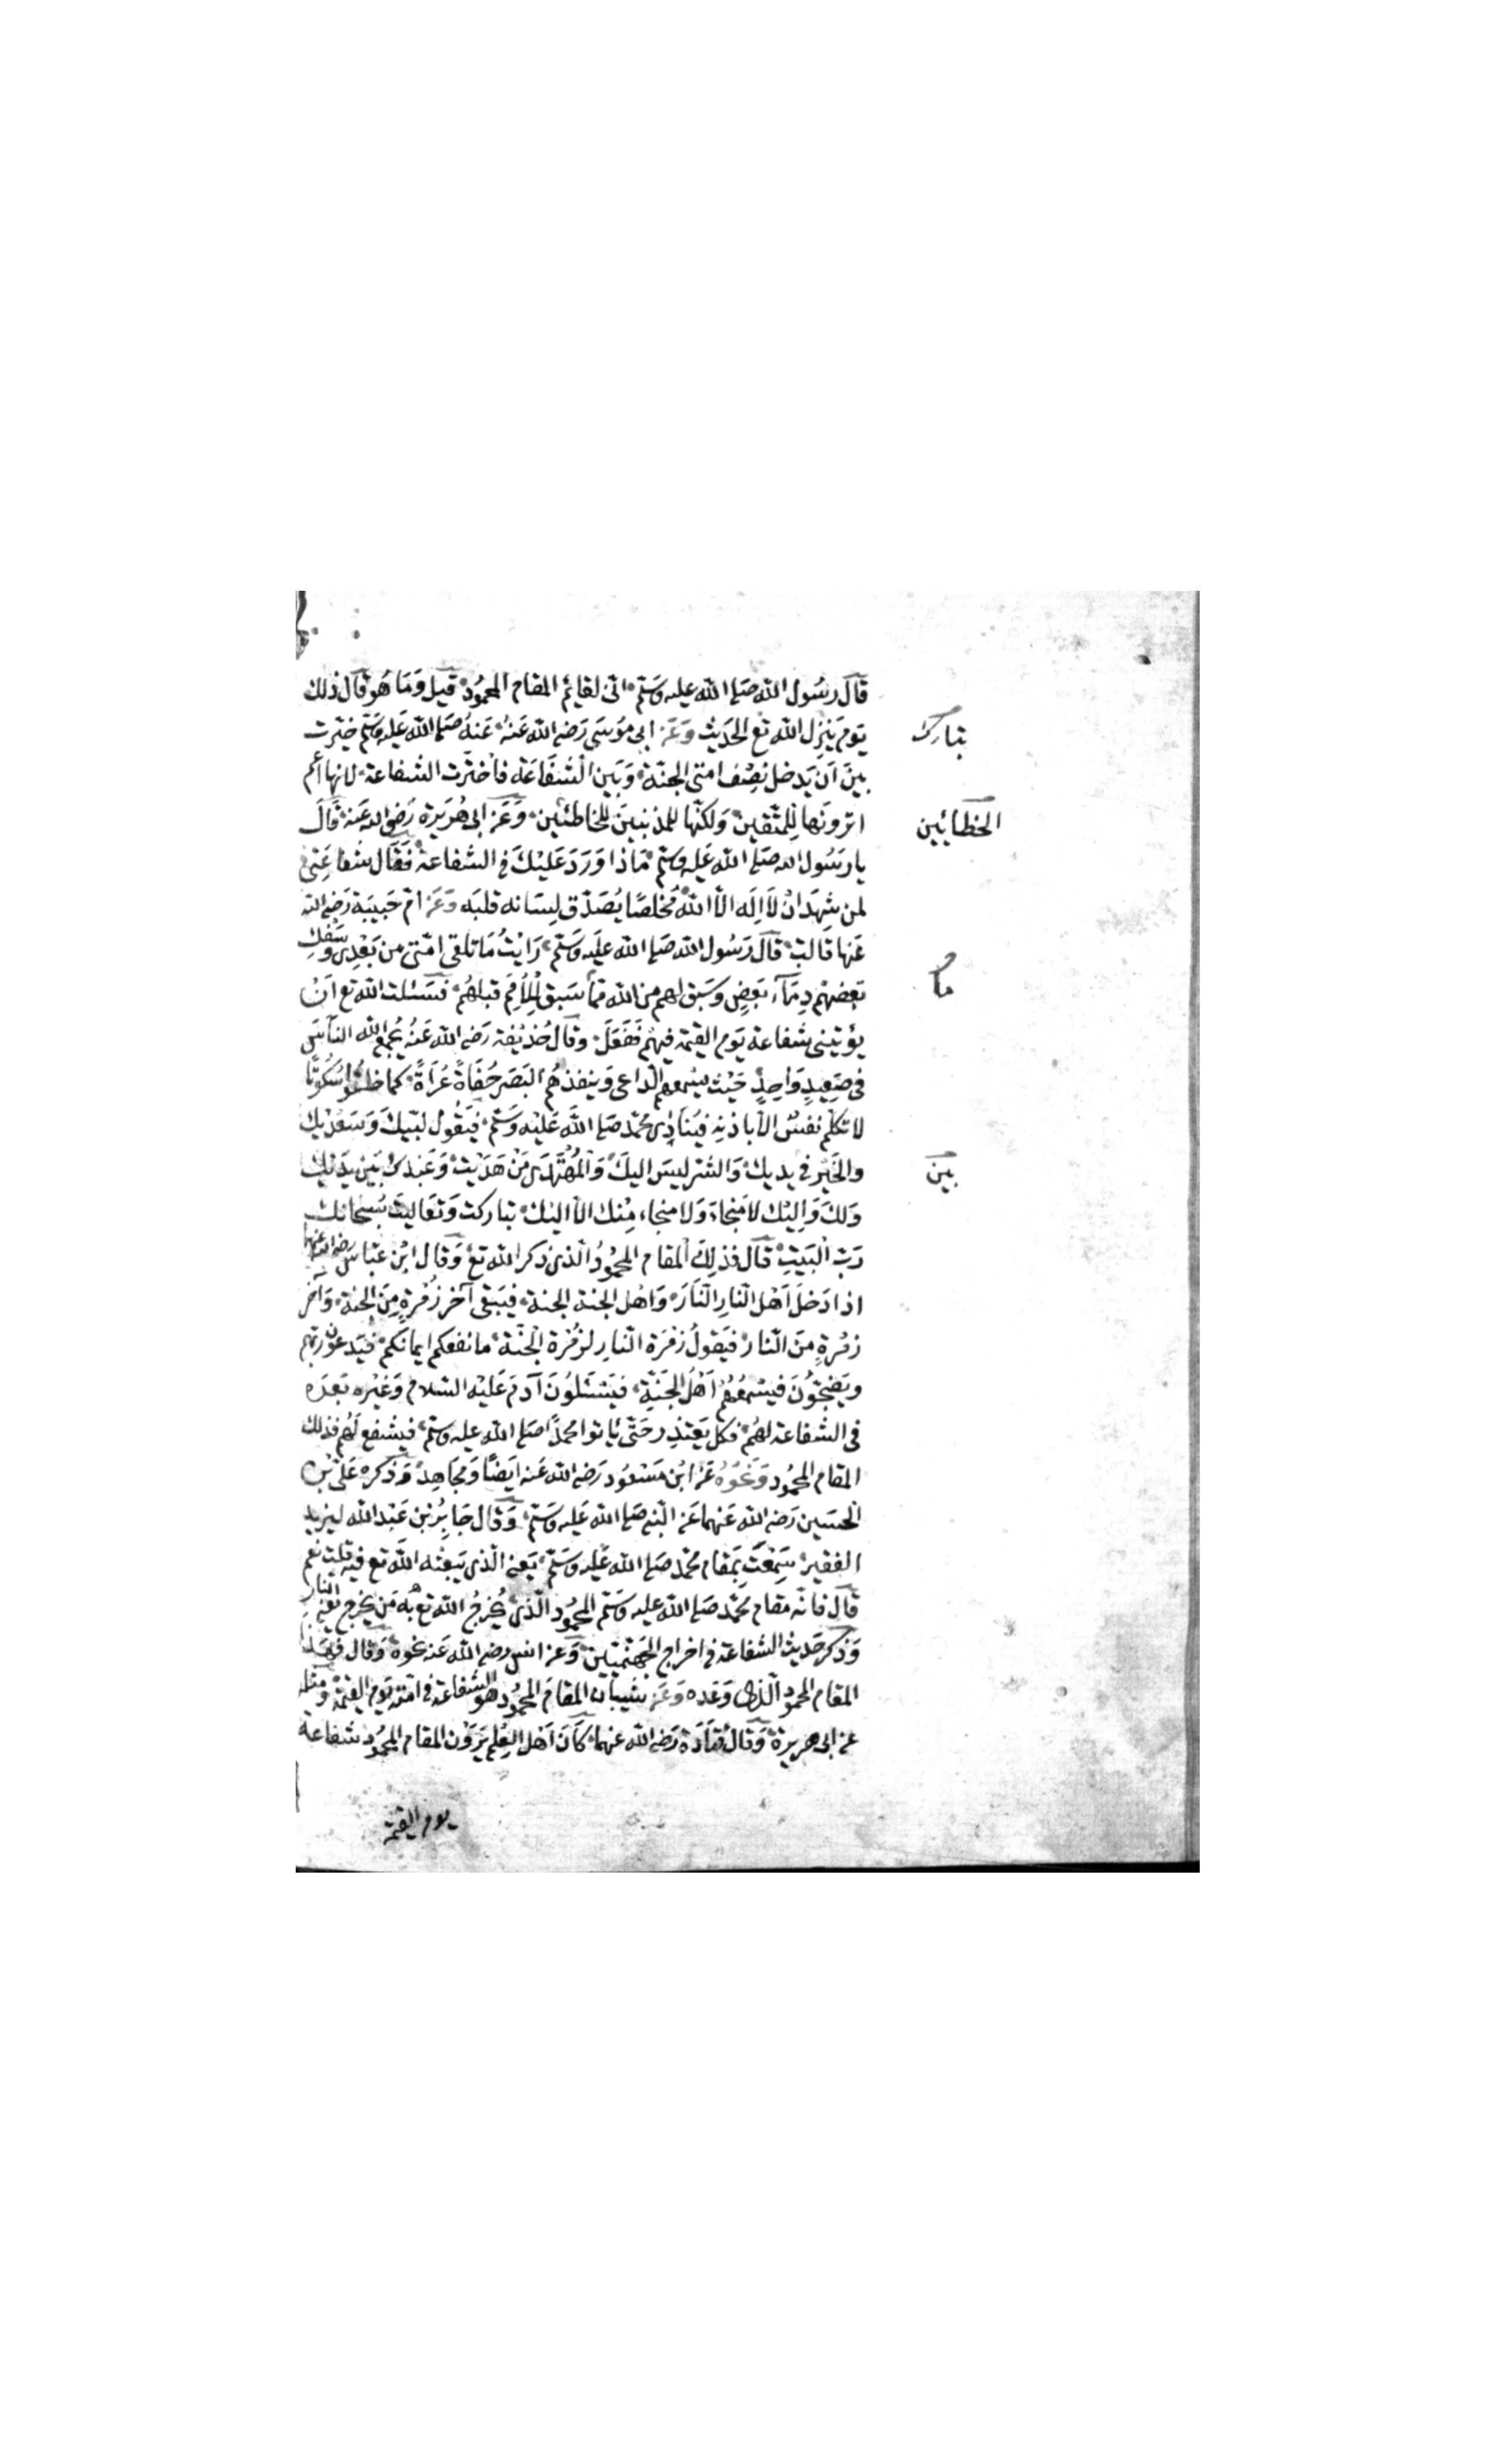 قَالَ رسُول الله صَلى الله عليه وَسَلم انى لقائم المقام المحمُود قيل وَمَا هُو قَال ذلك
يَوم يَنزِل الله تع الحَديث وَعَن ابى مُوسَى رَضى الله عَنهُ عَنهُ صَلى الله عَليه وَسَلم خيّرت
تبارك
بينَ اَن يَدخل نِصف امتى الجنّة وَبَين الشفَاعَة فاختَرت الشفاعة لانها اعم
اترونَها لِلمتّقين وَلكنّها للمذنبينَ للخاطئين وَعَن ابى هُرَيرة رَضى الله عَنه قَالَ
الخطائين
يا رسُول الله صَلى الله عَليه وسَلم مَاذا وَرَدَ عَليْكَ فى الشفاعة فَقَال شفاعَتى
لمن شهِدَ انْ لَا اِله الّا الله مُخلصًا يُصَدّق لِسَانه قلبَه وَعَن امّ حَبيبَة رَضى الله
عَنها قالت قَال رَسُول الله صَلى الله عَليه وَسَلم رَايْتُ مَا تلقى امّتى من بَعْدِى وَسَفك
بَعضهُم دِمَآء بَعضٍ وسَبق لهم من الله مَا سَبق لِلاُمَم قبلهُم فسَئلت الله تع اَنْ
ما
يؤتينى شفاعة يَوم القيمة فيهُم فَفَعَلَ وقال حُذيْفة رَضى الله عَنهُ يجمع الله الناسَ
فى صَعِيدٍ وَاحِدٍ حَيْث يسْمعهم الدّاعى وَينفذهُم البَصَر حُفَاةً عُرَاةً كما خلقوا سُكوتًا
لا تكلم نفسٌ الّا باذنه فيُنَادَى محمّد صَلى الله عَليْه وَسَلم فيَقُول لبّيكَ وَسَعْدَيْكَ
والخَيْر فى يديك وَالشر ليسَ اليكَ وَالْمُهْتَدَى مَنْ هَدَيْت وَعَبدك بَين يَدَيْكَ
بين
وَلكَ وَاليْك لا مَنجاء وَلا منجاء مِنْك الّا اليْك تباركت وَتعَاليتَ سُبحانك
رَبّ الْبَيتِ قَال فذلك المقام المحمُودُ الّذى ذكر الله تع وَقال ابْن عَبّاسٍ رضى الله عنهما
اذا دَخلَ اَهْل النارِ النّارَ وَاهْل الجنة الجنة فيَبقى آخر زُمْرةٍ مِنَ الجنة وَآخر
زمْرةٍ مِنَ النّار فيَقولُ زمْرَة النّار لزمْرَة الْجنّة ما نفعكم ايمانكم فيَدعونَ ربّهم
ويَضِجّونَ فيسْمعُهُم اَهْلُ الجَنّةِ فيَسْئلوُنَ آدمَ عَليْه السّلام وَغَيْره بَعدَه
فى الشفاعة لهُم فكل يَعتذِر حَتّى ياتوا محمّدًا صَلى الله عليه وسَلم فيشفع لهُم فذلك
المقام المحمُود وَنَحوُهُ عَن ابْن مَسْعُود رَضى الله عَنه ايضًا وَمجَاهِد وَذكره عَلىّ بْن
الحسَين رَضى الله عَنهما عَن النّبى صَلى الله عَليه وَسَلم وَقال جَابِرُ بْن عَبْد الله ليزيد
الفقير سَمِعْتَ بمَقام محمّد صَلى الله عَليه وَسَلم يَعنى الّذى يَبعَثه الله تع فيه قلت نعم
قَال فانّه مقام محمّد صَلى الله عليه وَسَلم المحمُود الّذى يُخرجُ الله تع به مَن يخرج يعنى النار
وَذكر حَديث الشفاعة فى اخراج الجهنّميّين وَعن انس رضى الله عَنه نحوه وَقال فهذا
المقام المحمود الّذى وَعَده وَعَن شيبَان المقامُ المحمُود هو الشفاعة فى امّته يَوم القيمة وَمثله
عن ابى هريرة وَقالَ قتادَة رَضى الله عنهما كَانَ اَهْل العِلم يَرَوْن المقام المحمُود شفاعة
يوم القيمة